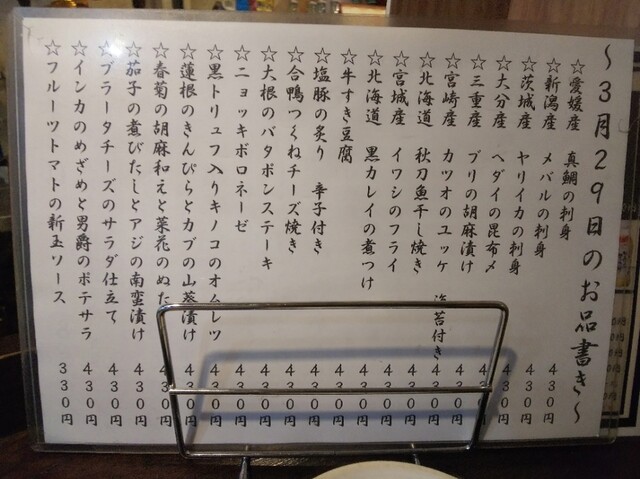 ～3月29日のお品書き～
☆愛媛産 真鯛の刺身 430円
☆新潟産 メバルの刺身 430円
☆茨城産 ヤリイカの刺身 430円
☆大分産 ヘダイの昆布〆 430円
☆三重産 ブリの胡麻漬け 430円
☆宮崎産 カツオのユッケ 海苔付き 430円
☆北海道 秋刀魚干し焼き 430円
☆宮城産 イワシのフライ 430円
☆北海道 黒カレイの煮つけ 430円
☆牛すき豆腐 430円
☆塩豚の炙り 辛子付き 430円
☆合鴨つくねチーズ焼き 430円
☆大根のバタポンステーキ 430円
☆ニョッキボロネーゼ 430円
☆黒トリュフ入りキノコのオムレツ 430円
☆蓮根のきんぴらとカブの山葵漬け 430円
☆春菊の胡麻和えと菜花のぬた 430円
☆茄子の煮びたしとアジの南蛮漬け 430円
☆ブラータチーズのサラダ仕立て 430円
☆インカのめざめと男爵のポテサラ 430円
☆フルーツトマトの新玉ソース 330円